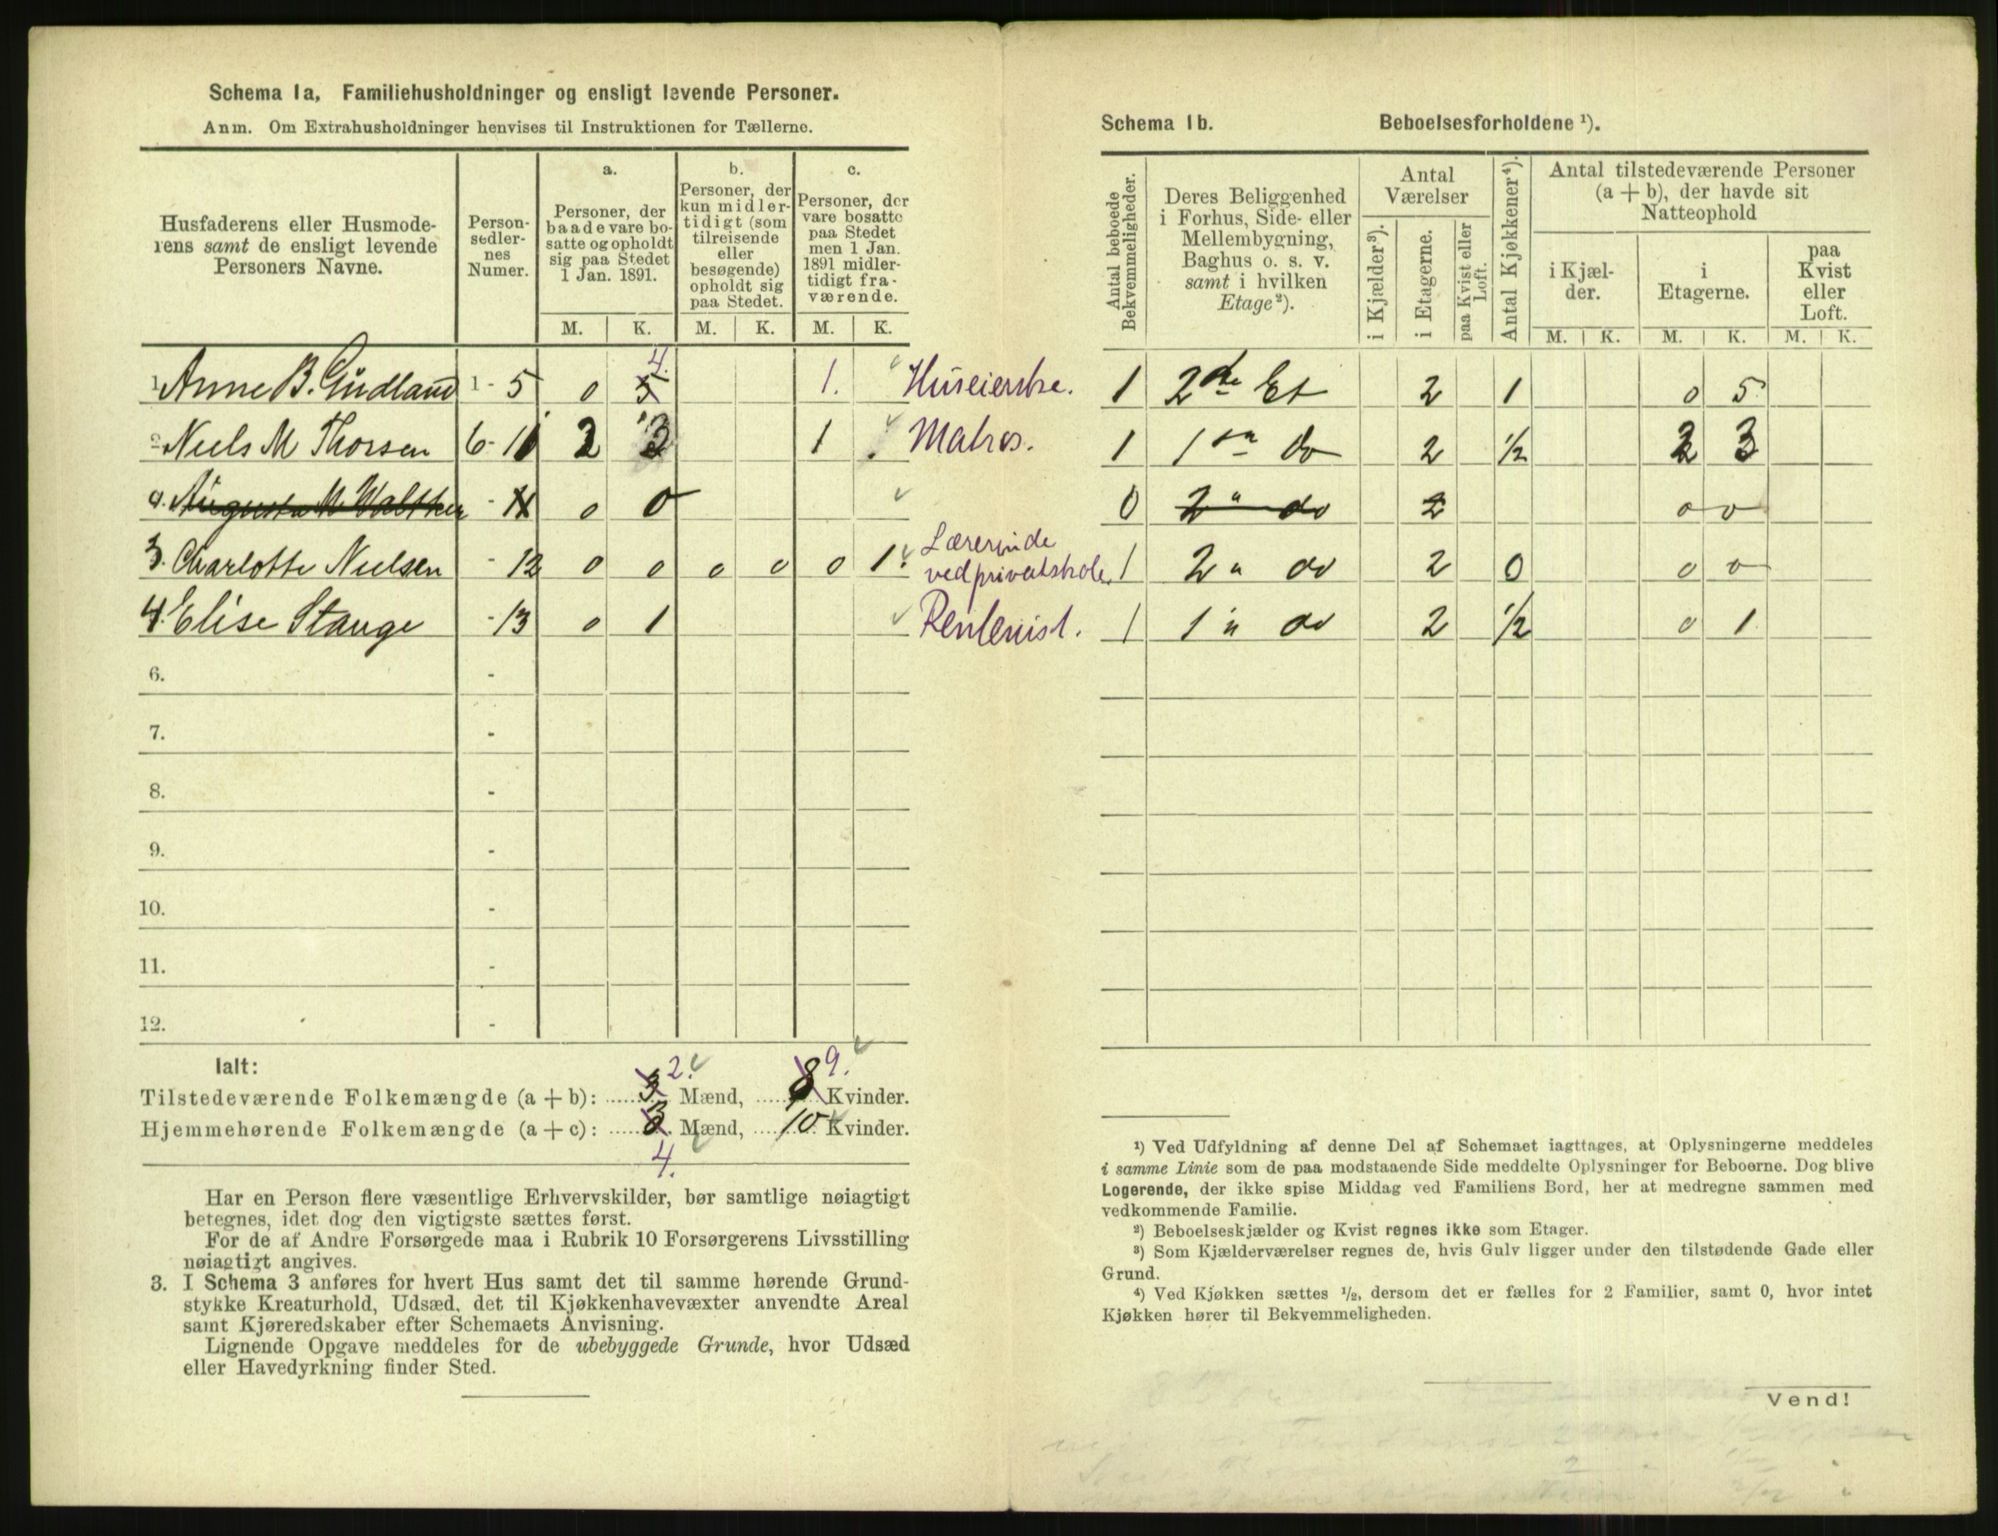 Schema 1a. Familiehusholdninger og ensligt levende Personer.
Anm. Om Extrahusholdninger henvises til Instruktionen for Tællerne.
Husfaderens eller Husmode-
rens samt de ensligt levende
Personers Navne.
Person-
sedler-
nes
Numer.
a.
Personer, der
baade vare bo-
satte og opholdt
sig paa Stedet
1 Jan. 1891.
b.
Personer, der
kun midler-
tidigt (som
tilreisende
eller
besøgende)
opholdt sig
paa Stedet.
c.
Personer, der
vare bosatte
paa Stedet
men 1 Jan.
1891 midler-
tidigt fra-
værende.
M. K. M. K. M. K.
1. Anne B. Gudland 1 - 5 0 5 4. 1. Huseierske.
2 Niels M Thorsen 6 - 10 2 3 1 Matros.
Augusta M Walther - 11 0 0
3. Charlotte Nielsen - 12 0 0 0 0 0 1. Lærerinde
ved privatskole.
4. Elise Stange - 13 0 1 Rentenist.
6. -
7. -
8. -
9. -
10. -
11. -
12. -
Ialt:
Tilstedeværende Folkemængde (a + b): 3 2. Mænd, 8 9. Kvinder.
Hjemmehørende Folkemængde (a + c): 3 Mænd, 10 Kvinder.
4.
Har en Person flere væsentlige Erhvervskilder, bør samtlige nøiagtigt
betegnes, idet dog den vigtigste sættes først.
For de af Andre Forsørgede maa i Rubrik 10 Forsørgerens Livsstilling
nøiagtigt angives.
3. I Schema 3 anføres for hvert Hus samt det til samme hørende Grund-
stykke Kreaturhold, Udsæd, det til Kjøkkenhavevæxter anvendte Areal
samt Kjøreredskaber efter Schemaets Anvisning.
Lignende Opgave meddeles for de ubebyggede Grunde, hvor Udsæd
eller Havedyrkning finder Sted.
Schema 1b. Beboelsesforholdene ¹).
Antal beboede
Bekvemmeligheder.
Deres Beliggenhed
i Forhus, Side- eller
Mellembygning,
Baghus o. s. v.
samt i hvilken
Etage²).
Antal
Værelser
i Kjælder³).
i Etagerne.
paa Kvist eller
Loft.
Antal Kjøkkener⁴).
Antal tilstedeværende Personer
(a + b), der havde sit
Natteophold
i Kjæl-
der.
i
Etagerne.
paa
Kvist
eller
Loft.
M. K. M. K. M. K.
1 2de Et 2 1 0 5
1 1ste do 2 ½ 2 3
0 2 " do 2 0 0
1 2 " do 2 0 0 0
1 1 " do 2 ½ 0 1
¹) Ved Udfyldning af denne Del af Schemaet iagttages, at Oplysningerne meddeles
i samme Linie som de paa modstaaende Side meddelte Oplysninger for Beboerne. Dog blive
Logerende, der ikke spise Middag ved Familiens Bord, her at medregne sammen med
vedkommende Familie.
²) Beboelseskjælder og Kvist regnes ikke som Etager.
³) Som Kjælderværelser regnes de, hvis Gulv ligger under den tilstødende Gade eller
Grund.
⁴) Ved Kjøkken sættes ½, dersom det er fælles for 2 Familier, samt 0, hvor intet
Kjøkken hører til Bekvemmeligheden.
Vend!